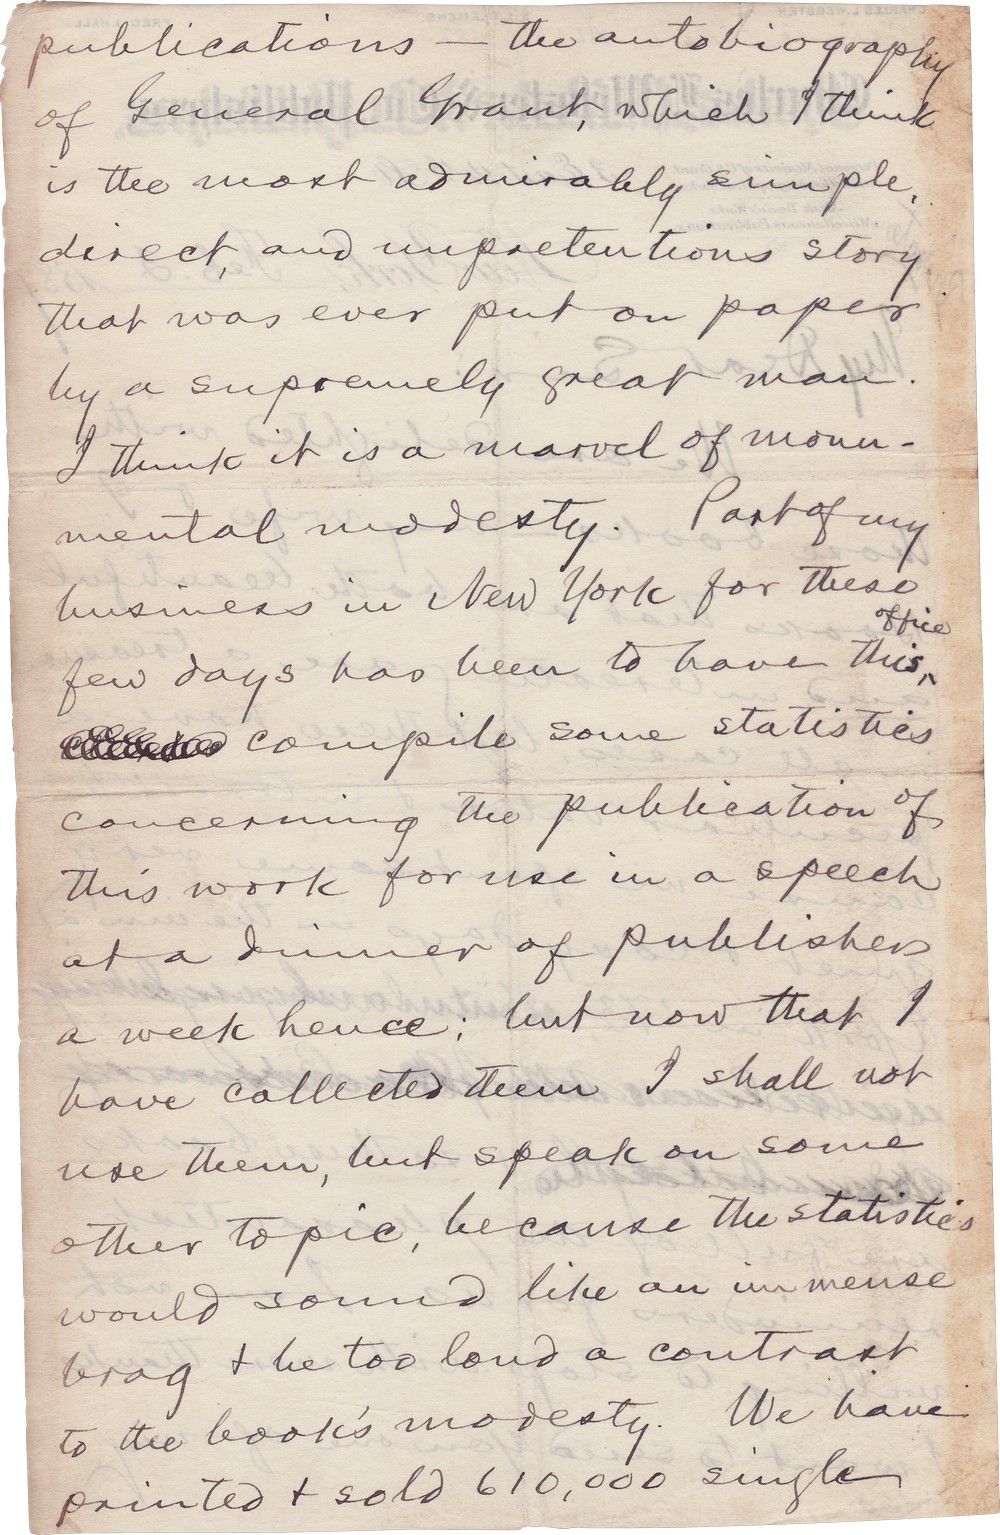 publications — the autobiography
of General Grant, which I think
is the most admirably simple,
direct, and unpretentious story
that was ever put on paper
by a supremely great man.
I think it is a marvel of monu-
mental modesty. Part of my
business in New York for these
few days has been to have this office
compile some statistics
concerning the publication of
this work for use in a speech
at a dinner of publishers
a week hence; but now that I
have collected them I shall not
use them, but speak on some
other topic, because the statistics
would sound like an immense
brag & be too loud a contrast
to the book's modesty. We have
printed & sold 610,000 single